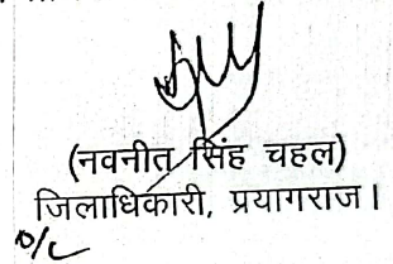 (नवनीत सिंह चहल)
जिलाधिकारी, प्रयागराज।
o/c